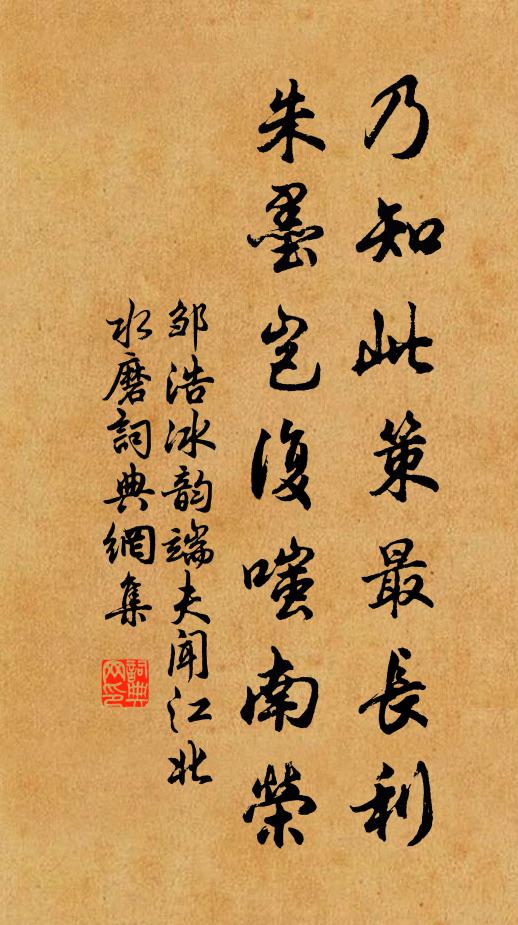 乃知此策最長利
朱墨岂復嗤南榮
邹浩冰韵端夫闻江北
水磨詞典網集
詞典網印